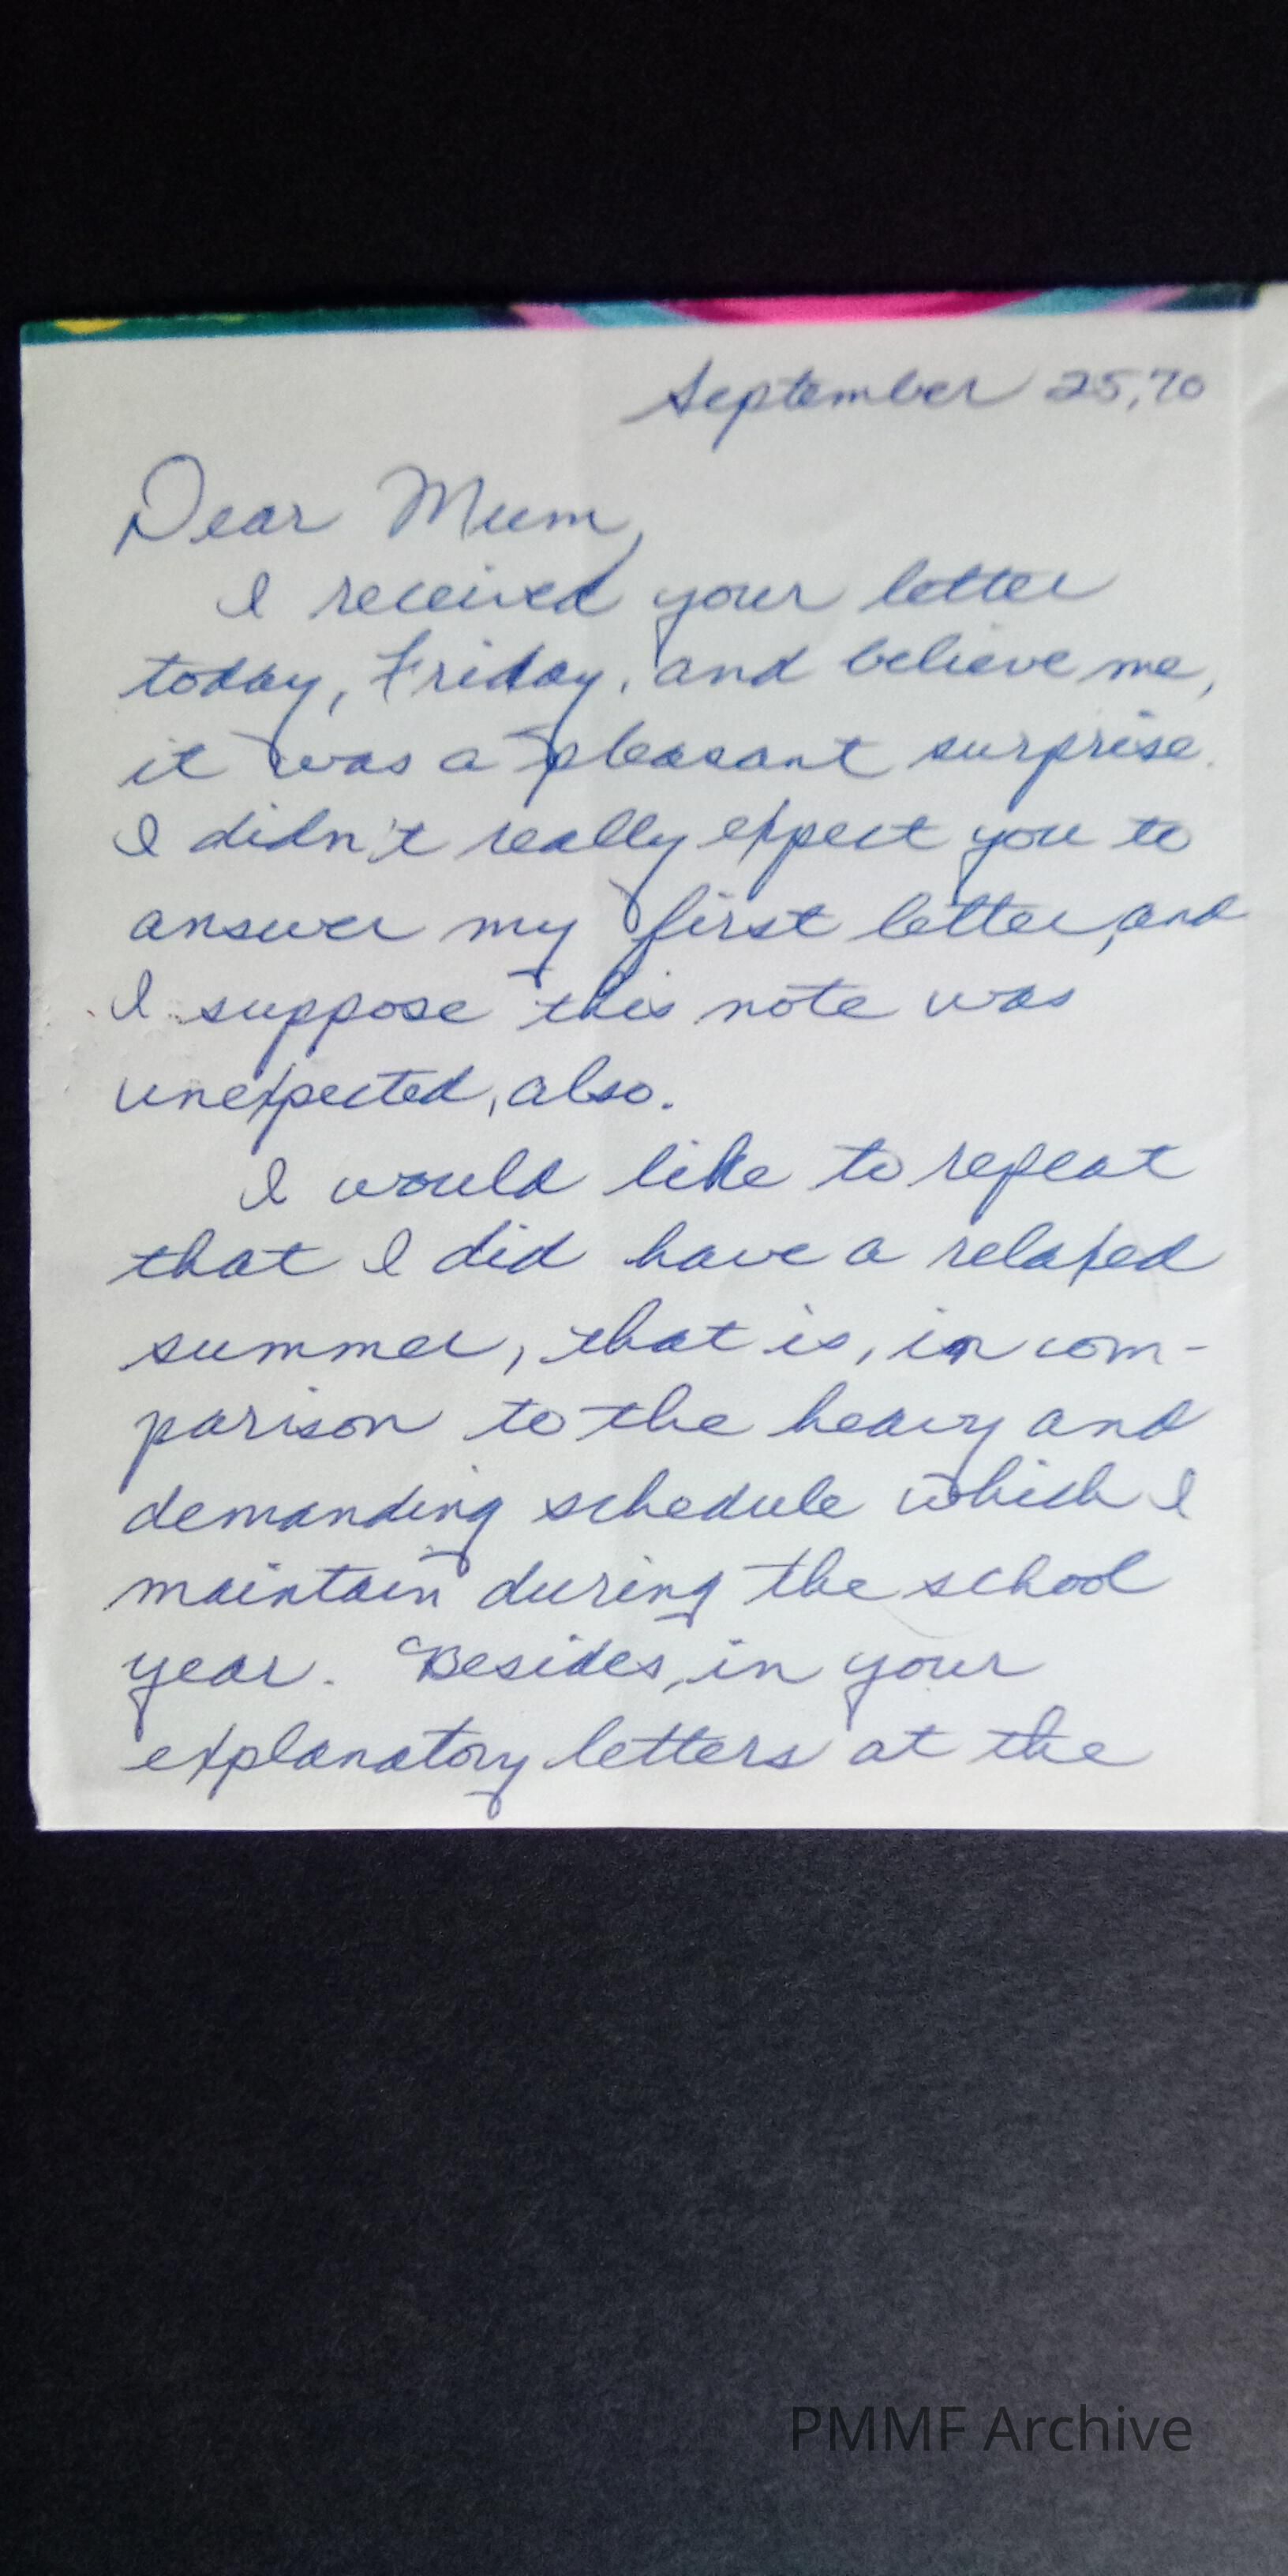 September 25, 70
Dear Mum,
I received your letter
today, Friday, and believe me,
it was a pleasant surprise.
I didn't really expect you to
answer my first letter, and
I suppose this note was
unexpected, also.
I would like to repeat
that I did have a relaxed
summer, that is, in com-
parison to the heavy and
demanding schedule which I
maintain during the school
year. Besides, in your
explanatory letters at the
PMMF Archive